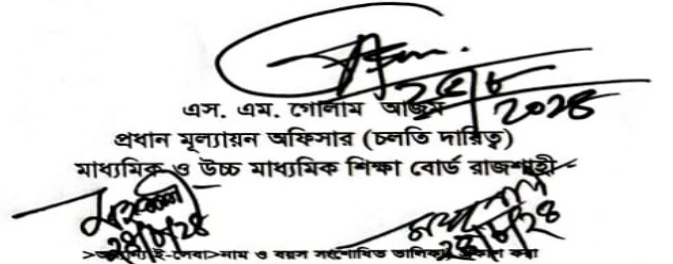 ২৫/৮
২০২৪
এস. এম. গোলাম আজম
প্রধান মূল্যায়ন অফিসার (চলতি দায়িত্ব)
মাধ্যমিক ও উচ্চ মাধ্যমিক শিক্ষা বোর্ড রাজশাহী
২৪/৮/২৪
২৪/৮/২৪
ই-সেবা>নাম ও বয়স সংশোধিত তালিকা
করা